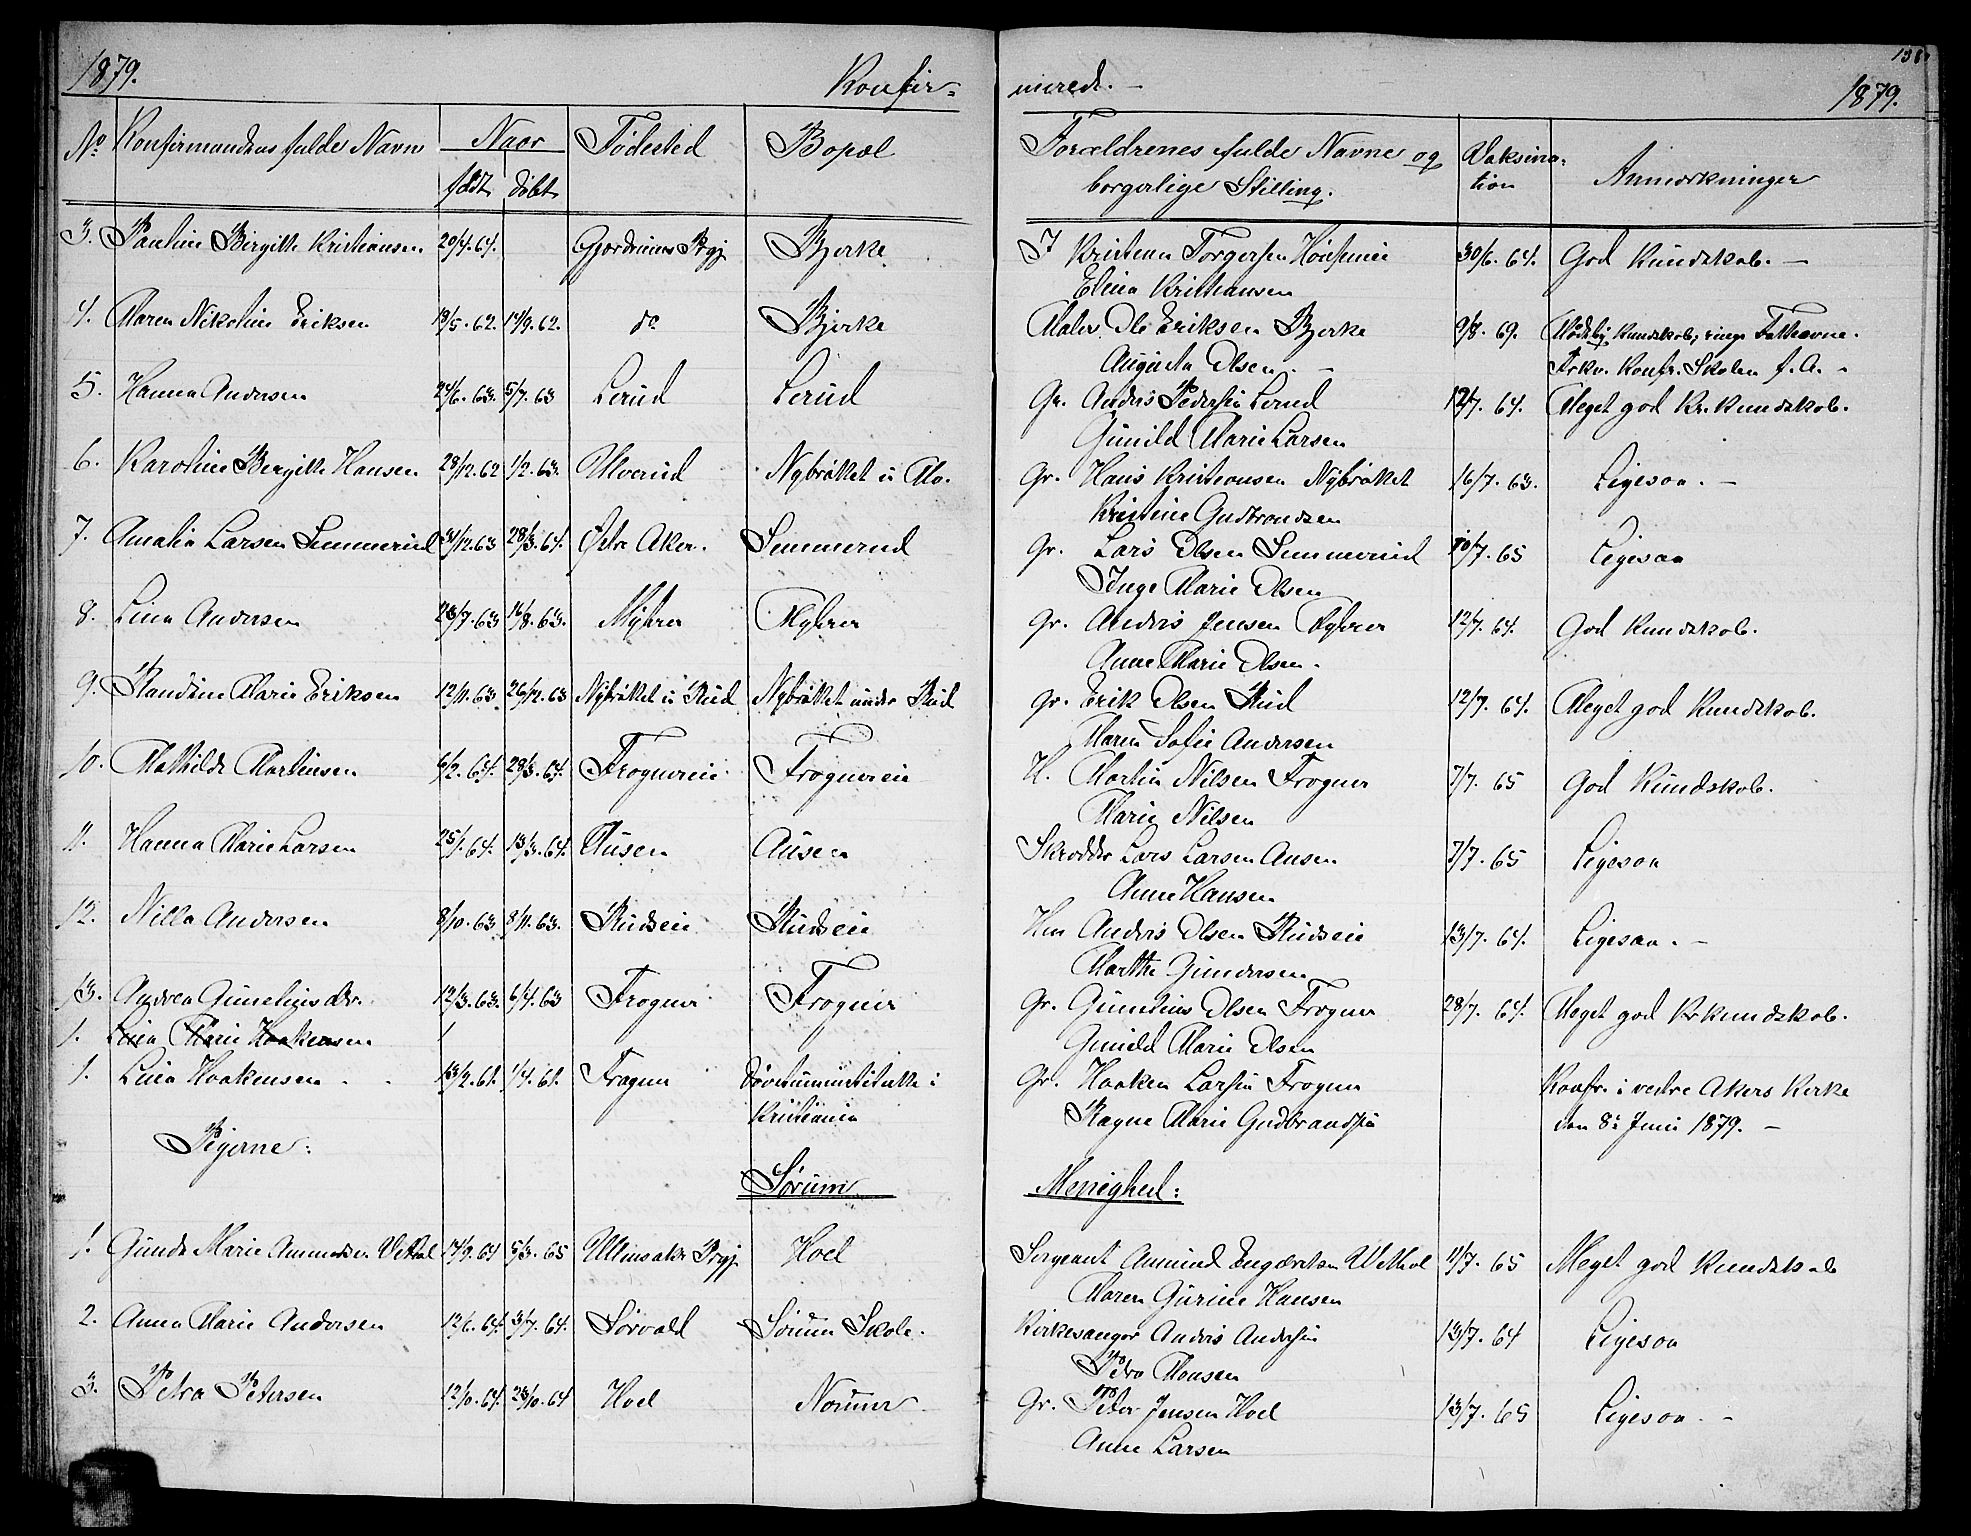 138.
1879. Konfir= mered. - 1879.
No Konfirmandens fulde Navn Naar Fødested Bopæl Forældrenes fulde Navne og Vaksina=
født døbt borgerlige Stilling. tion Anmærkninger
3. Pauline Birgitte Kristiansen 20/4.64. Gjerdrums Prgj. Bjerke I Kristian Torgersen 30/6.64. God Kundskab. -
Elina Kristiansen
4. Maren Nikoline Eriksen 18/5.62. 14/9.62. do Bjerke Maler Ole Eriksen Bjerke 9/8.69. Kundskab, ringe Fatteevne.
Augusta Olsen. - Frkv. Konfr. Skolen f. A. -
5. Hanna Andersen 24/6.63. 5/7.63 Lerud Lerud Gr. Anders Pedersen Lerud 12/7.64. Meget god Kr.kundskab.
Gunild Marie Larsen
6. Karoline Birgitte Hansen 28/12.62 1/2.63. Ulverud Nybråttet u. Mo. Gr. Hans Kristiansen Nybråttet 16/7.63. Ligesaa. -
Kristine Gudbrandsen
7. Amalia Larsen Semmerud 31/12.63 28/3.64. Østre Aker. Semmerud Gr. Lars Olsen Semmerud 10/7.65 Ligesaa
Inge Marie Olsen
8. Lina Andersen 23/7.63 16/8.63. Myhrer Myhrer Gr. Anders Jensen Myhrer 12/7.64. God Kundskab.
Anne Marie Olsen.
9. Randine Marie Eriksen 12/11.63. 26/12.63 Nybråttet u. Rud Nybråttet under Rud Gr. Erik Olsen Rud 12/7.64. Meget god Kundskab.
Maren Sofie Andersen
10. Mathilde Martinsen 6/2.64. 28/3.64. Frognereie Frognereie H. Martin Nilsen Frogner 7/7.65 God Kundskab.
Marie Nilsen
11. Hanna Marie Larsen 25/1.64. 13/3.64. Ausen Ausen Skrædder Lars Larsen Ausen 7/7.65 Ligesaa
Anne Hansen
12. Nilla Andersen 8/10.63. 8/11.63. Rudseie Rudseie Hm Anders Olsen Rudseie 13/7.64. Ligesaa. -
Marthe Gundersen
13. Andrea Gunelius dtr. 12/3.63. 6/4.63 Frogner Frogner Gr. Gunelius Olsen Frogner 28/7.64. Meget god Kr.kundskab.
Gunild Marie Olsen
1. Lina Marie Haakensen
1. Lina Haakensen 13/2.61. 1/4.61. Frogner Døvstummeinstitutte i Gr. Haaken Larsen Frogner Konfr. i vestre Akers Kirke
Kristiania Ragne Marie Gudbrandsen den 8de Juni 1879. -
Pigerne:
Sørum Menighed:
1. Gunda Marie Amundsen Vethal 14/9.64 5/3.65 Ullensaker Prgj. Hoel Sergeant Amund Engebretsen Wethal 11/7.65 Meget god Kundskab
Maren Gurine Hansen
2. Anna Marie Andersen 12/6.64. 3/7.64. Sørvald Sørum Skole. Kirkesanger Anders Andersen 13/7.64 Ligesaa
Pedra Monsen
3. Petra Petersen 12/10.64. 23/10.64 Hoel Nordmer Gr. Peter Jensen Hoel 13/7.65 Ligesaa. -
Anne Larsen